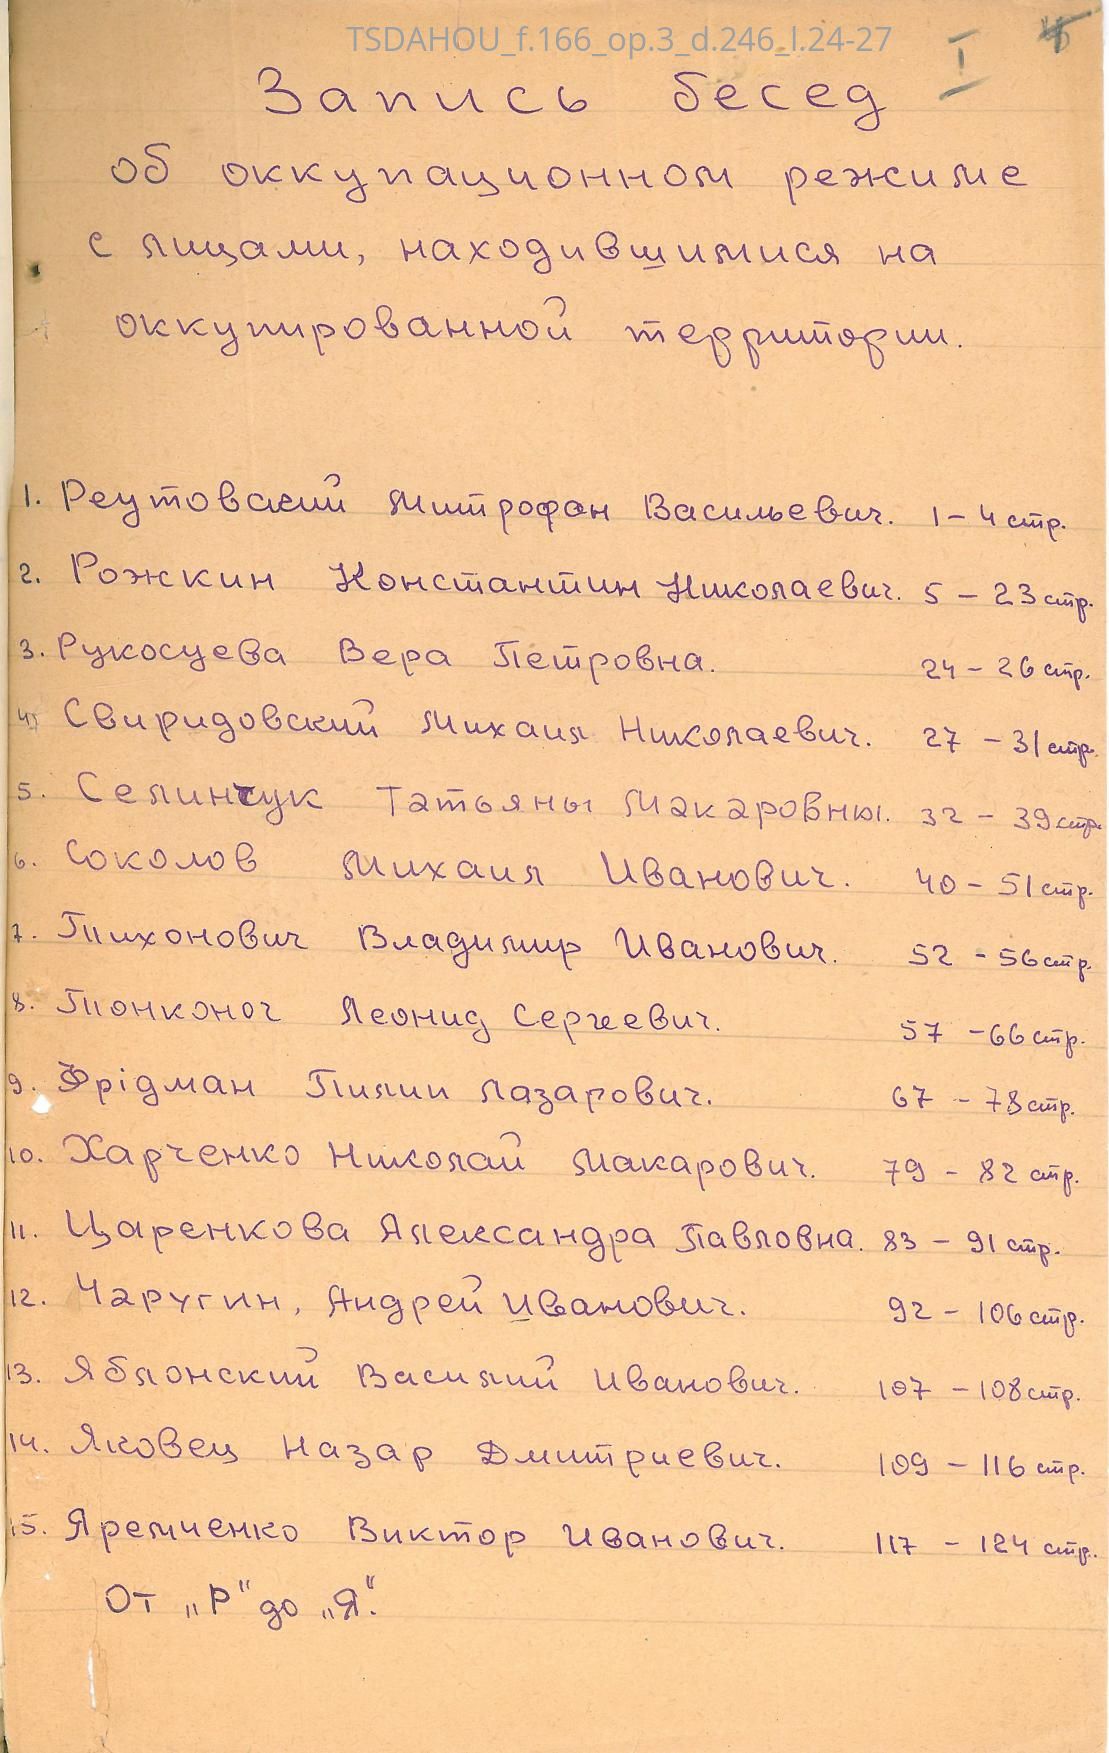 TSDAHOU_f.166_op.3_d.246_l.24-27
I
Запись бесед
об оккупационном режиме
с лицами, находившимися на
оккупированной территории.
1. Реутовский Митрофан Васильевич. 1 – 4 стр.
2. Рожкин Константин Николаевич. 5 – 23 стр.
3. Рукосуева Вера Петровна. 24 – 26 стр.
4. Свиридовский Михаил Николаевич. 27 – 31 стр.
5. Селинчук Татьяны Макаровны. 32 – 39 стр.
6. Соколов Михаил Иванович. 40 – 51 стр.
7. Тихонович Владимир Иванович. 52 - 56 стр.
8. Тонконог Леонид Сергеевич. 57 – 66 стр.
9. Фрідман Пилип Лазарович. 67 – 78 стр.
10. Харченко Николай Макарович. 79 – 82 стр.
11. Царенкова Александра Павловна. 83 – 91 стр.
12. Чаругин, Андрей Иванович. 92 – 106 стр.
13. Яблонский Василий Иванович. 107 – 108 стр.
14. Яковец Назар Дмитриевич. 109 – 116 стр.
15. Яремченко Виктор Иванович. 117 – 124 стр.
От „Р" до „Я".